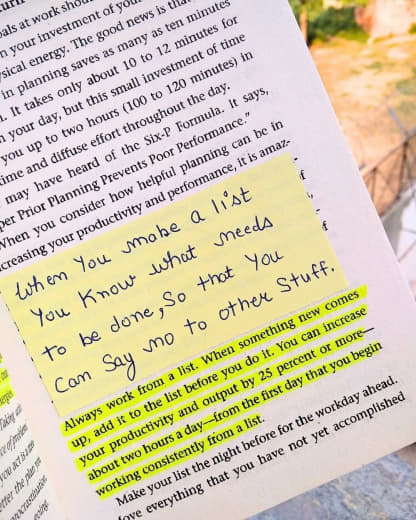 als at work shou
n your investment of you
sical energy. The good news is tha
in planning saves as many as ten minutes
. It takes only about 10 to 12 minutes for
your day, but this small investment of time
you up to two hours (100 to 120 minutes) in
ime and diffuse effort throughout the day.
may have heard of the Six-P Formula. It says,
per Prior Planning Prevents Poor Performance."
When you consider how helpful planning can be in
creasing your productivity and performance, it is amaz-
When You make a list
You Know what needs
to be done, So that You
Can Say no to other Stuff.
Always work from a list. When something new comes
up, add it to the list before you do it. You can increase
your productivity and output by 25 percent or more—
about two hours a day—from the first day that you begin
working consistently from a list.
Make your list the night before for the workday ahead.
ove everything that you have not yet accomplished